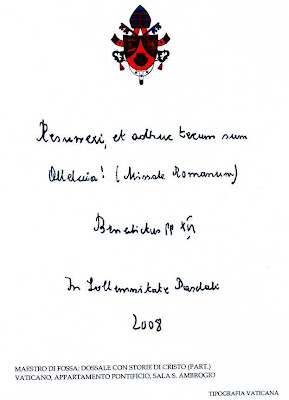 Resurrexi, et adhuc tecum sum
Alleluia! (Missale Romanum)
Benedictus PP XVI
In Sollemnitate Paschali
2008
MAESTRO DI FOSSA: DOSSALE CON STORIE DI CRISTO (PART.)
VATICANO, APPARTAMENTO PONTIFICIO, SALA S. AMBROGIO
TIPOGRAFIA VATICANA